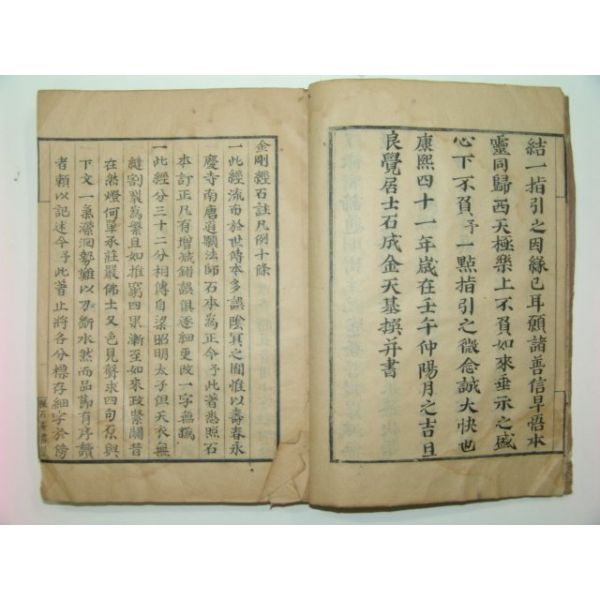 結一指引之因緣已耳願諸善信早悟本
靈同歸西天極樂上不負如來垂示之盛
心下不負予一點指引之微念誠大快也
康熙四十一年歲在壬午仲陽月之吉旦
良覺居士石成金天基撰并書
金剛經石註凡例十條
一此經流布於世時本多誤陰冥之間惟以壽春永
慶寺南唐道顒法師石本為正今予此著悉照石
本訂正凡有增減錯誤俱逐細更改一字無訛
一此經分三十二分相傳自梁昭明太子但天衣無
縫割裂為繁且如推窮四果漸至如來政緊關昔
在然燈何單承莊嚴佛土又色見聲求四句原與
下文一氣瀠洄勢難以刀斷水然而品節有序讀
者賴以記述今予此著止將各分標存細字於傍